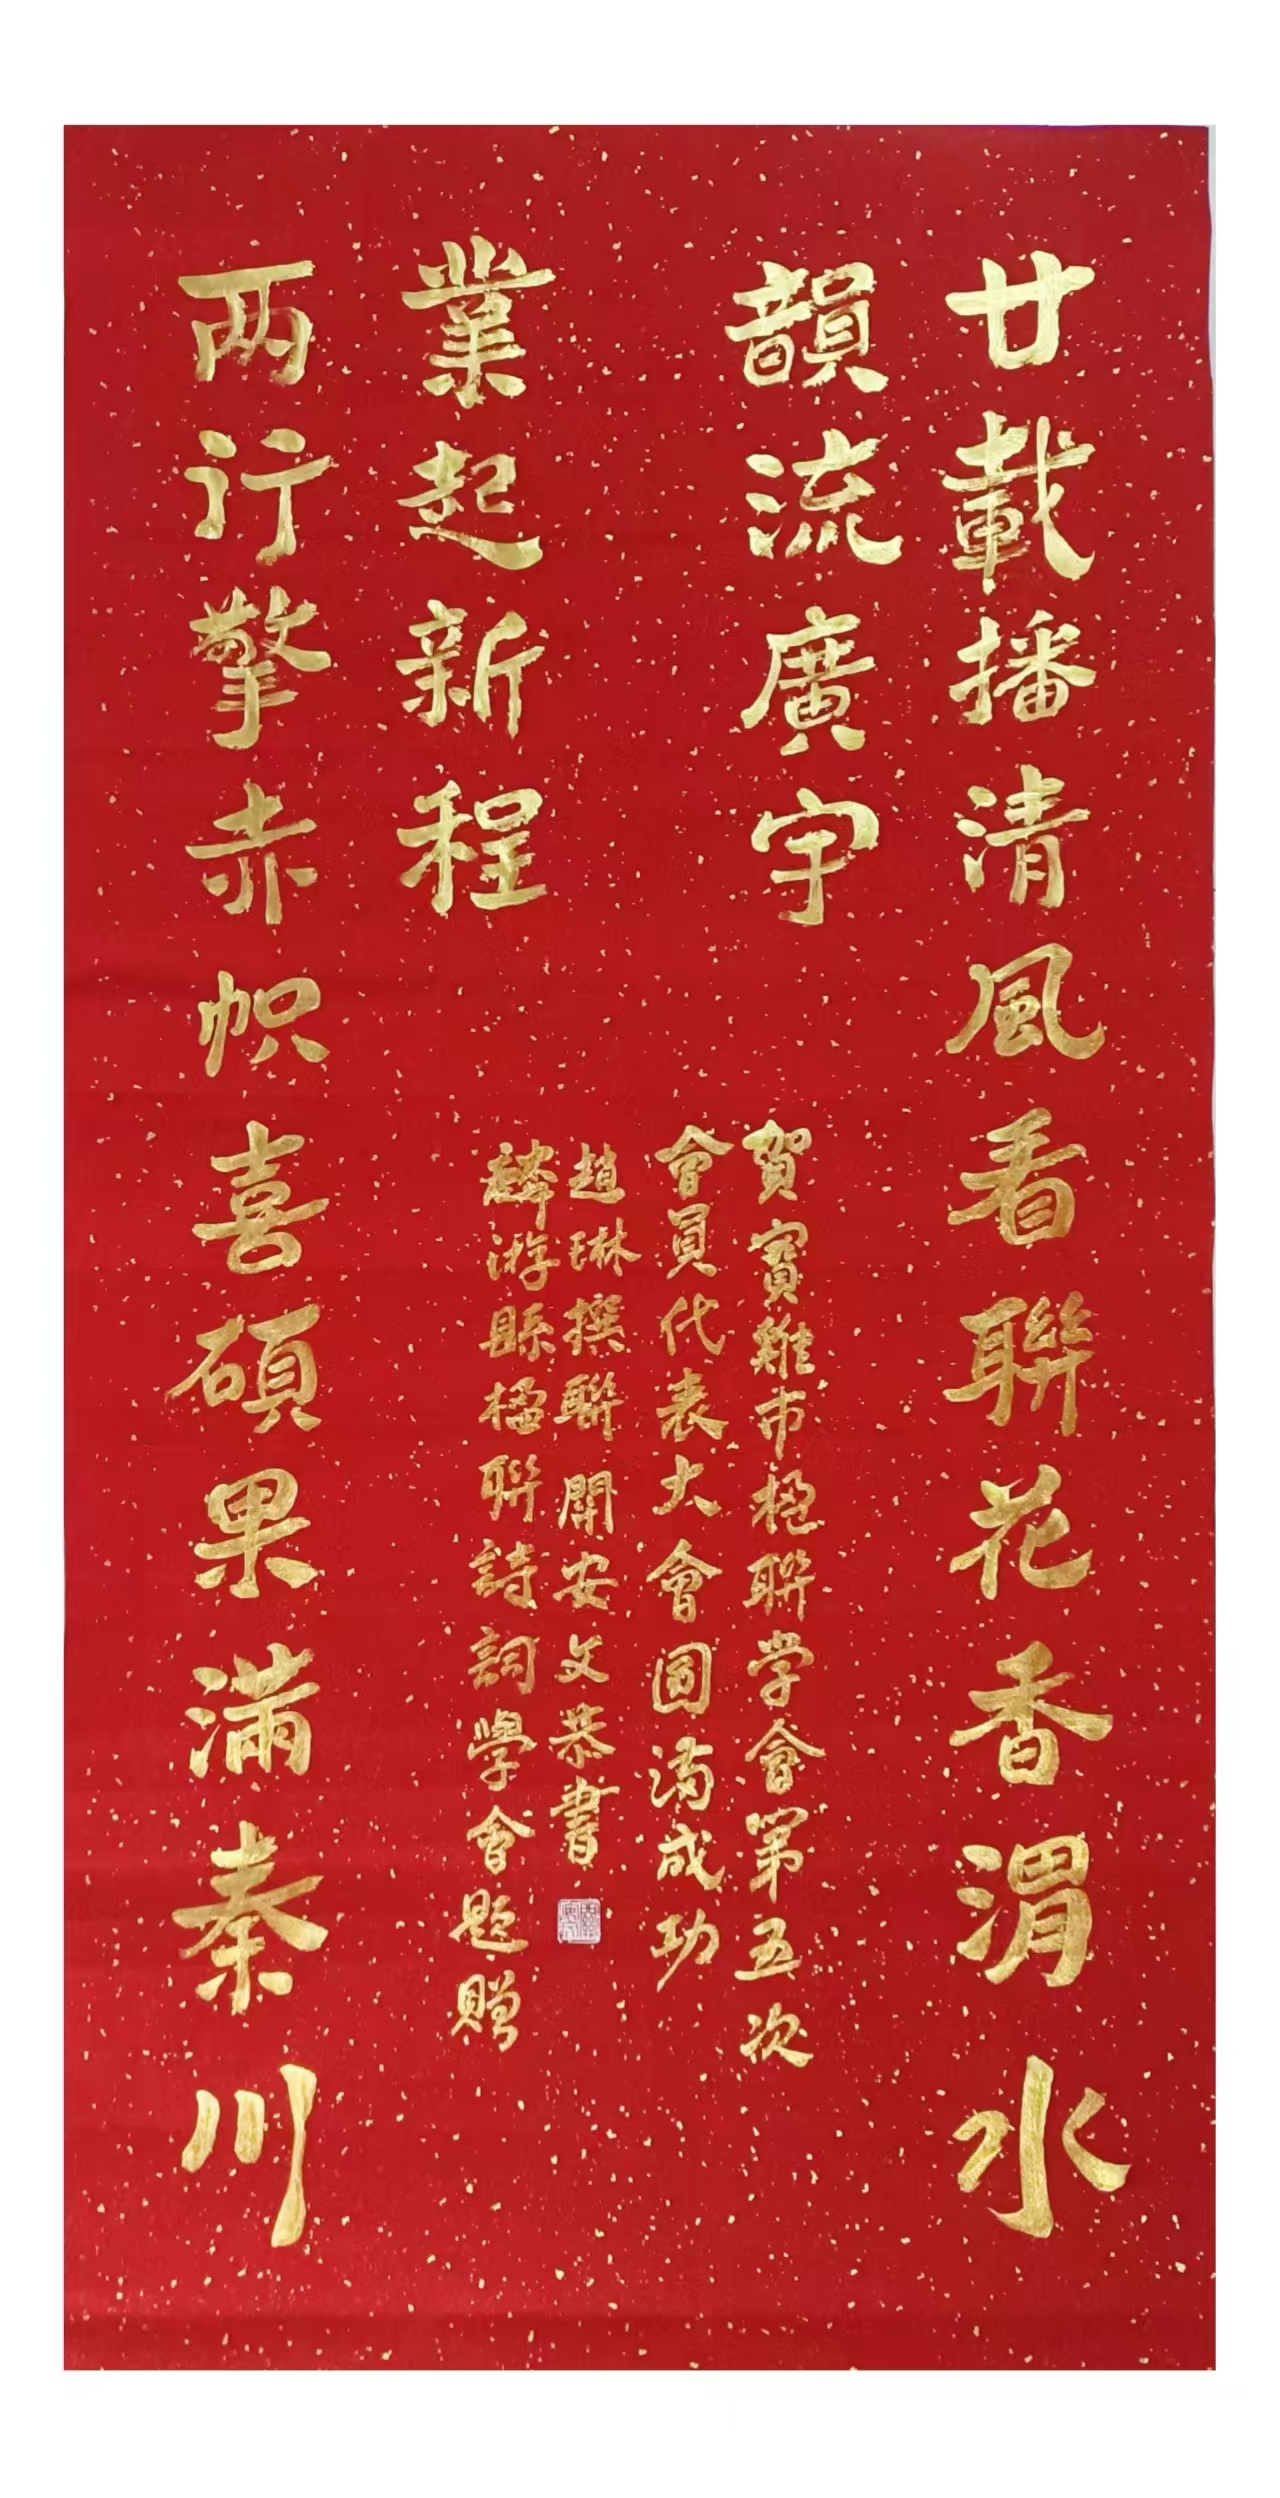 廿載播清風看聯花香渭水
韻流廣宇
賀寶雞市楹聯学會第五次
會員代表大會圆满成功
趙琳撰聯關安文恭書
麟游縣楹聯詩詞學會题贈
業起新程
两行擎赤帜喜碩果满秦川